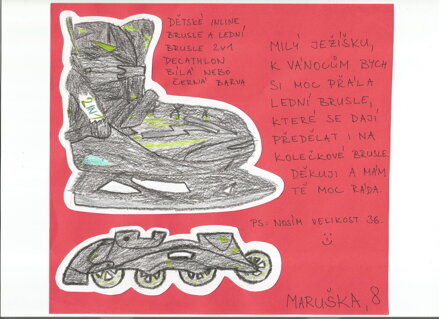 DĚTSKÉ INLINE
BRUSLE A LEDNÍ
BRUSLE 2V1
DECATHLON
BÍLÁ NEBO
ČERNÁ BARVA
MILÝ JEŽÍŠKU,
K VÁNOCŮM BYCH
SI MOC PŘÁLA
LEDNÍ BRUSLE,
KTERÉ SE DAJÍ
PŘEDĚLAT I NA
KOLEČKOVÉ BRUSLE
DĚKUJI A MÁM
TĚ MOC RÁDA.
PS: NOSÍM VELIKOST 36.
2V1
MARUŠKA, 8